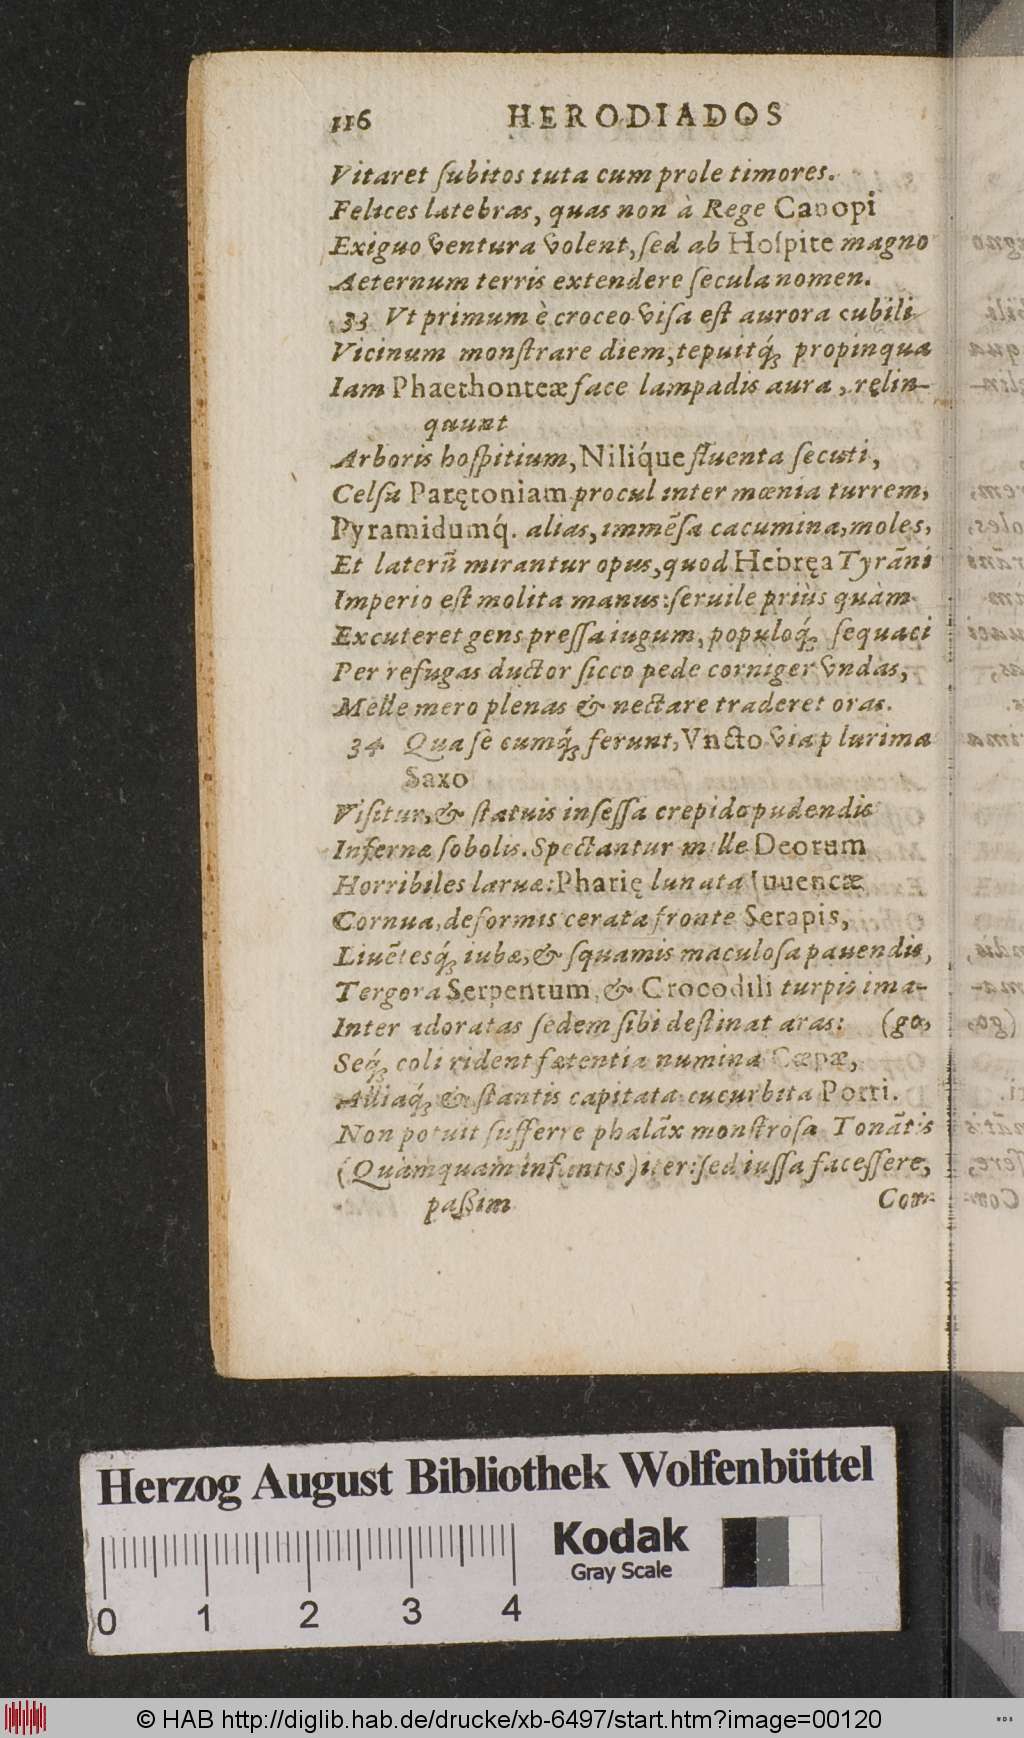 116 HERODIADOS
Vitaret ſubitos tuta cum prole timores.
Felices latebras, quas non à Rege Canopi
Exiguo ventura volent, ſed ab Hoſpite magno
Aeternum terris extendere ſecula nomen.
33 Vt primum è croceo viſa eſt aurora cubili
Vicinum monſtrare diem, tepuitq́ꝫ propinqua
Iam Phaethonteæ face lampadis aura, ręlin-
quunt
Arboris hoſpitium, Niliq́ue fluenta ſecuti,
Celſa Parętoniam procul inter mœnia turrem,
Pyramidumq́. alias, immẽſa cacumina, moles,
Et laterũ mirantur opus, quod Hebręa Tyrãni
Imperio eſt molita manus: ſeruile priùs quàm
Excuteret gens preſſa iugum, populoq́ꝫ ſequaci
Per refugas ductor ſicco pede corniger vndas,
Melle mero plenas & nectare traderet oras.
34 Qua ſe cumq́ꝫ ferunt, Vncto via plurima
Saxo
Viſitur, & ſtatuis inſeſſa crepido pudendis
Infernæ ſobolis. Spectantur mille Deorum
Horribiles laruæ: Pharię lunata Iuuencæ
Cornua, deformis cerata fronte Serapis,
Liuẽtesq́ꝫ iubæ, & ſquamis maculoſa pauendis,
Tergora Serpentum, & Crocodili turpis ima-
Inter adoratas ſedem ſibi deſtinat aras: (go,
Seq́ꝫ coli rident fœtentia numina Cæpæ,
Alliaq́ꝫ & ſtantis capitata cucurbita Porri.
Non potuit ſufferre phalãx monſtroſa Tonãtis
(Quamquam infantis) iter: ſed iuſſa faceſſere,
paßim Com-
Herzog August Bibliothek Wolfenbüttel
0 1 2 3 4
Kodak
Gray Scale
© HAB http://diglib.hab.de/drucke/xb-6497/start.htm?image=00120